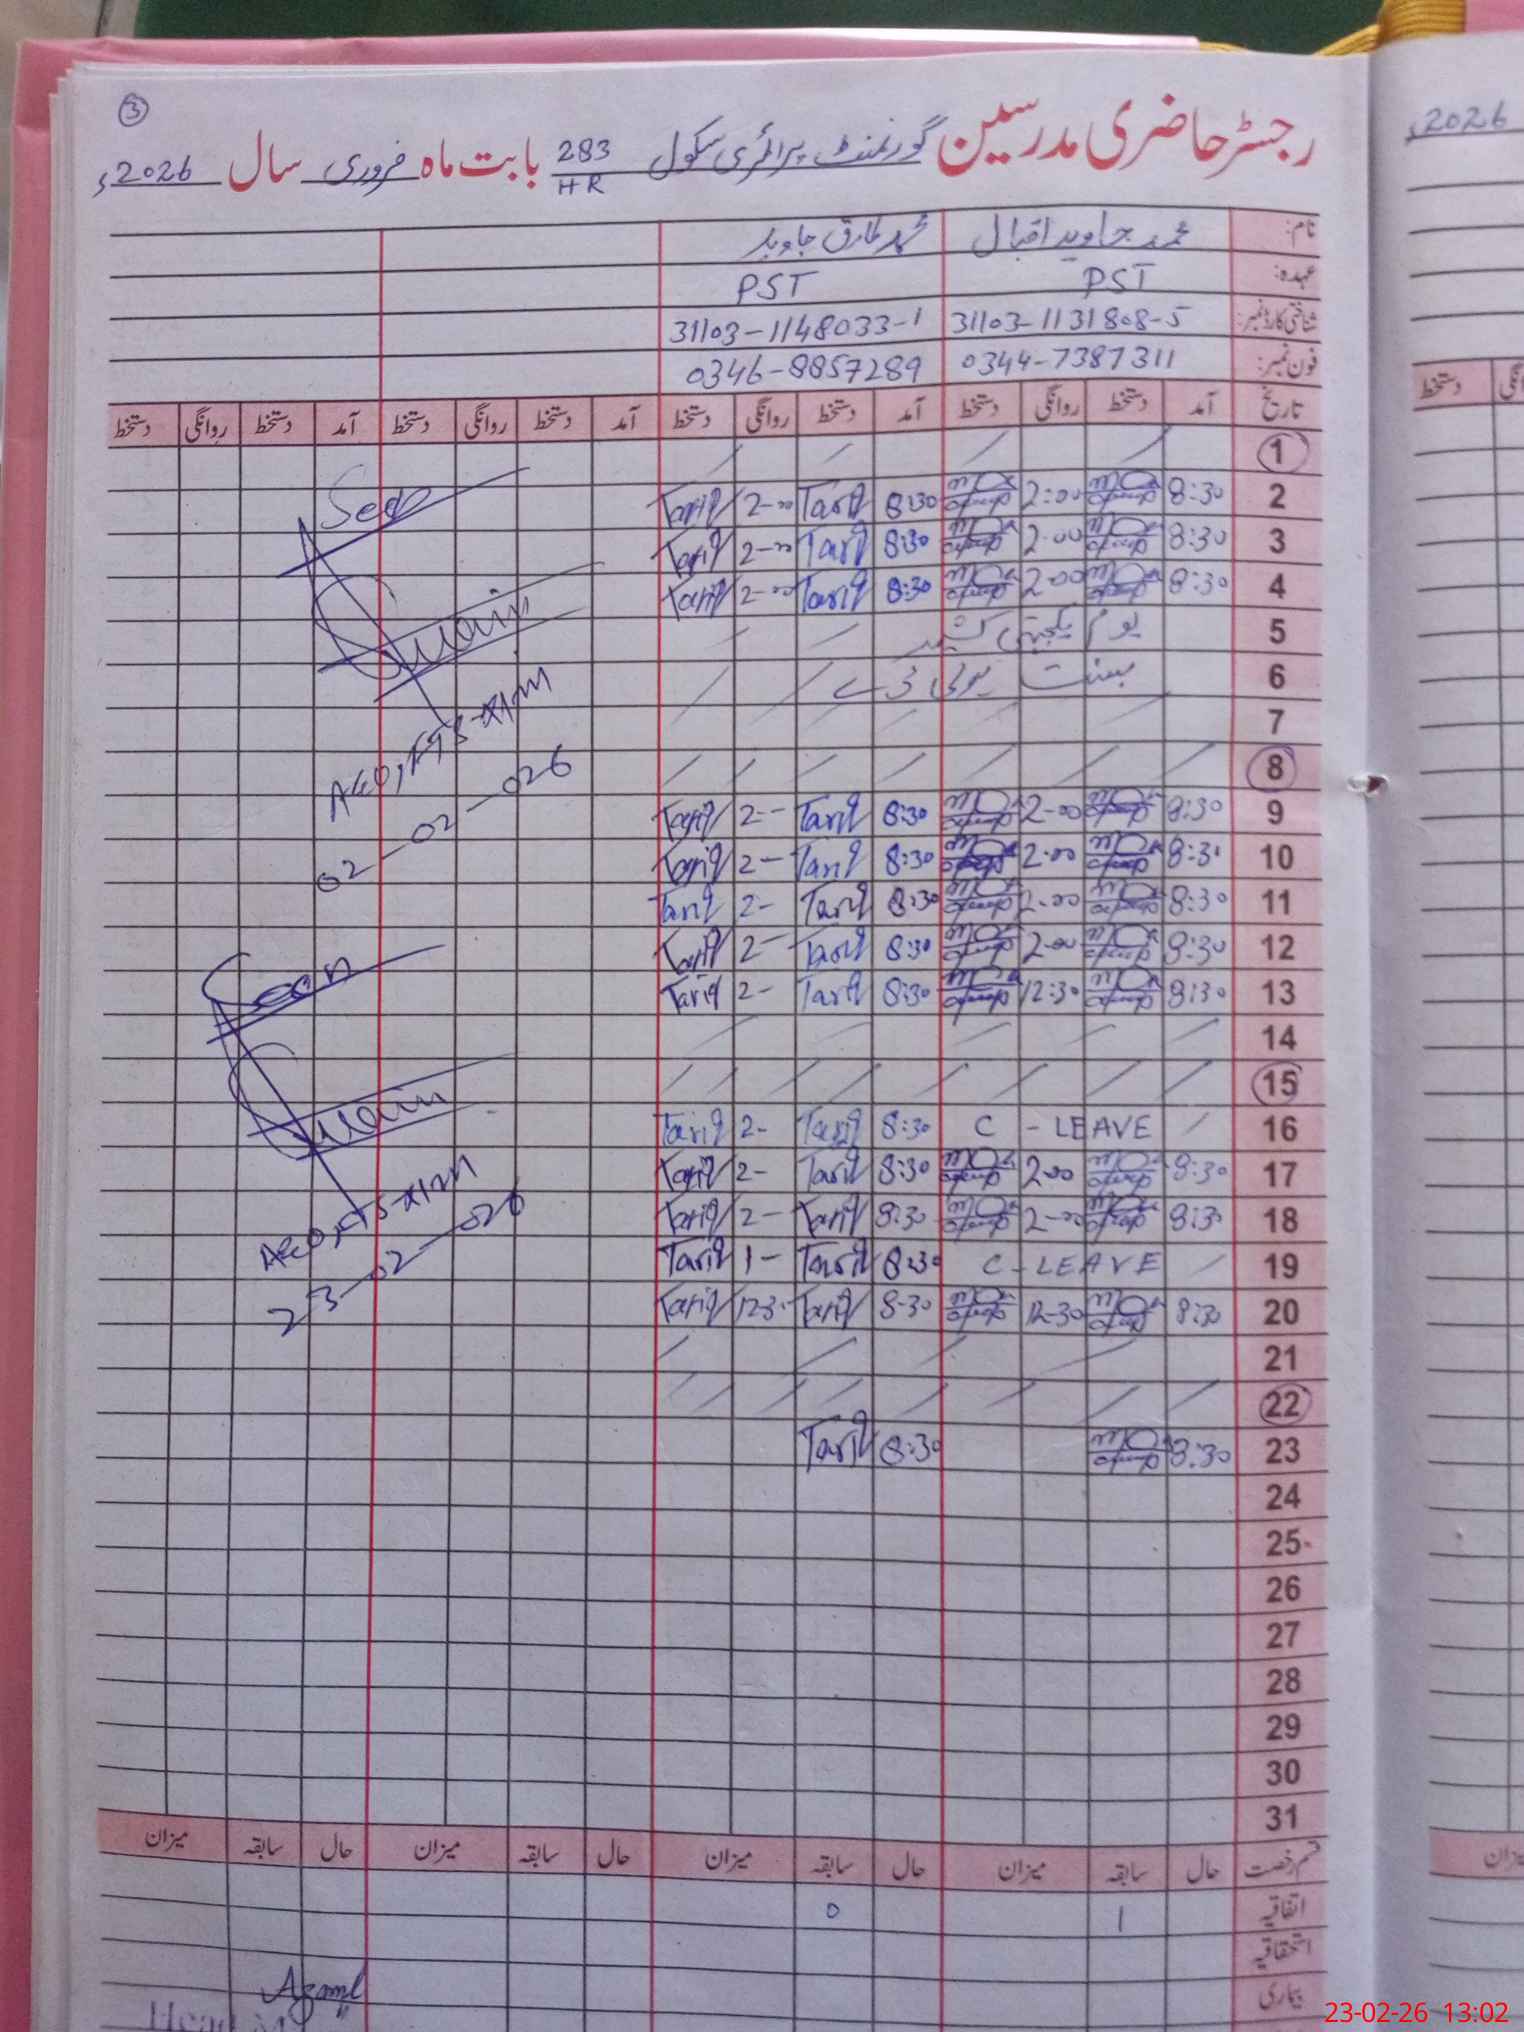 3
رجسٹر حاضری مدرسین گورنمنٹ پرائمری سکول 283/HR بابت ماہ فروری سال 2026ء
نام: محمد جاوید اقبال محمد طارق جاوید
عہدہ: PST PST
شناختی کارڈ نمبر: 31103-1131808-5 31103-1148033-1
فون نمبر: 0344-7387311 0346-8857289
تاریخ آمد دستخط روانگی دستخط آمد دستخط روانگی دستخط آمد دستخط روانگی دستخط آمد دستخط روانگی دستخط
1
2 8:30 2:00 8:30 Tariq 2-00 Tariq
3 8:30 2.00 8:30 Tariq 2-00 Tariq
4 8:30 2.00 8:30 Tariq 2-00 Tariq
5 یوم یکجہتی کشمیر
6 بسنت
7
8
9 8:30 2-00 8:30 Tariq 2-- Tariq
10 8:30 2.00 8:30 Tariq 2- Tariq
11 8:30 2-00 8:30 Tariq 2- Tariq
12 8:30 2-00 8:30 Tariq 2- Tariq
13 8:30 12:30 8:30 Tariq 2- Tariq
14
15
16 C - LEAVE 8:30 Tariq 2- Tariq
17 8:30 2.00 8:30 Tariq 2- Tariq
18 8:30 2-00 8:30 Tariq 2- Tariq
19 C - LEAVE 8:30 Tariq 1- Tariq
20 8:30 12-30 8-30 Tariq 12-30 Tariq
21
22
23 8:30 8:30 Tariq
24
25
26
27
28
29
30
31
Seen
02-02-026
Seen
23-02-026
قسم رخصت حال سابقہ میزان حال سابقہ میزان حال سابقہ میزان حال سابقہ میزان
اتفاقیہ 1 0
استحقاقیہ
بیماری
2026ء
دستخط
میزان
23-02-26 13:02